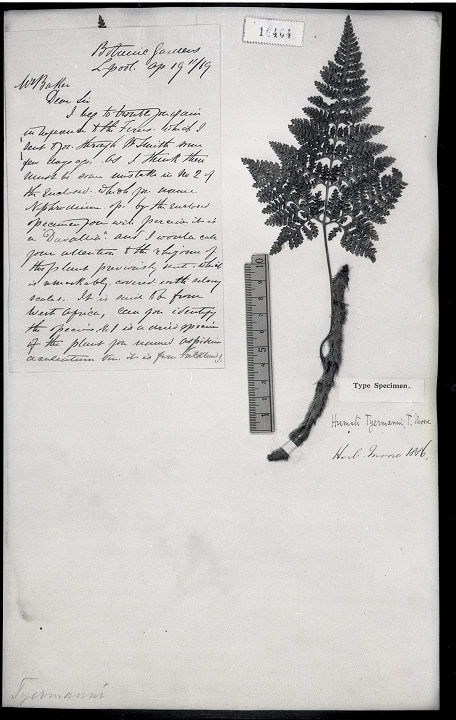 Botanic Gardens
L.pool. ap 19
Mr Baker
Dear Sir
I beg to trouble you again
in reference to the Ferns. Which I
sent to you through Smith some
days ago. As I think there
must be some mistake in no 2 of
the Enclosed. Which you name
Nephrodium sp. by the enclosed
specimen you will perceive it is
a "Davallia". and I would call
your attention to the rhizome of
the plant previously sent. which
is remarkably covered with silvery
scales. It is said to be from
West Africa, Can you identify
the species. No 1 is a dried specimen
of the plant you named aspidium
aculeatum it is from
16464
10
5
Type Specimen.
Humata Tyermanni T. Moore
Herb. Moore 1886.
Tyermanni